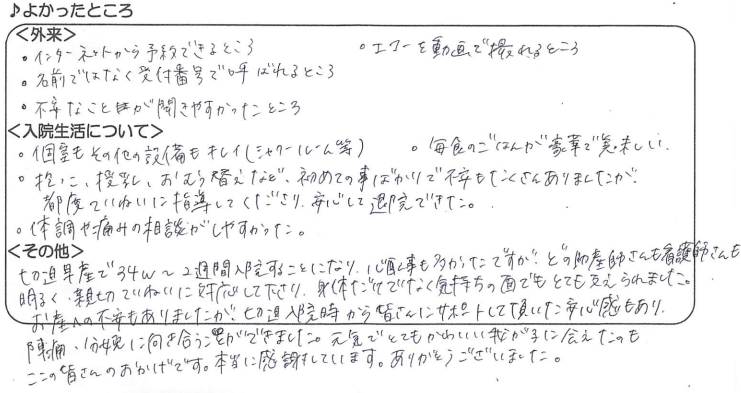 ♪よかったところ
<外来>
・インターネットから予約できるところ ・エコーを動画で撮れるところ
・名前ではなく受付番号で呼ばれるところ
・不安なことが聞きやすかったところ
<入院生活について>
・個室もその他の設備もキレイ(シャワールーム等) ・毎食のごはんが豪華で美味しい。
・抱っこ、授乳、おむつ替えなど、初めての事ばかりで不安もたくさんありましたが、
都度ていねいに指導してくださり、安心して退院できた。
・体調や痛みの相談がしやすかった。
<その他>
切迫早産で34w~2週間入院することになり、心配事も多かったですが、どの助産師さんも看護師さんも
明るく、親切ていねいに対応して下さり、身体だけでなく気持ちの面でもとても支えられました。
お産への不安もありましたが、切迫入院時から皆さんにサポートして頂いた安心感もあり、
陣痛、分娩に向き合うことができました。元気でとてもかわいい我が子に会えたのも
ここの皆さんのおかげです。本当に感謝しています。ありがとうございました。